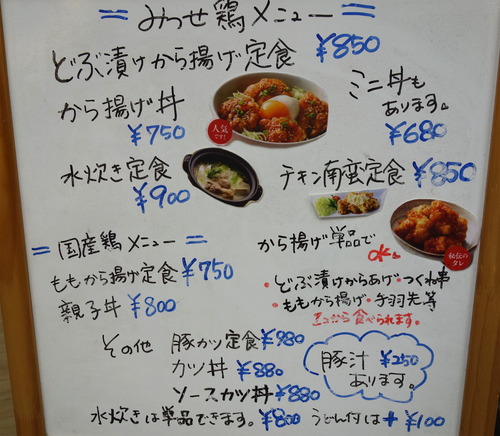 みつせ鶏メニュー
どぶ漬けから揚げ定食 ¥850
から揚げ丼
¥750
人気です!
ミニ丼も
あります。
¥680
水炊き定食
¥900
チキン南蛮定食 ¥850
秘伝のタレ
国産鶏メニュー
ももから揚げ定食 ¥750
親子丼 ¥800
から揚げ単品で
OK。
・どぶ漬けからあげ・つくね串
・ももから揚げ・手羽先等
から食べられます。
その他 豚カツ定食 ¥980
カツ丼 ¥880
ソースカツ丼 ¥880
豚汁 ¥250
あります。
水炊きは単品できます。¥800 うどん付は+¥100